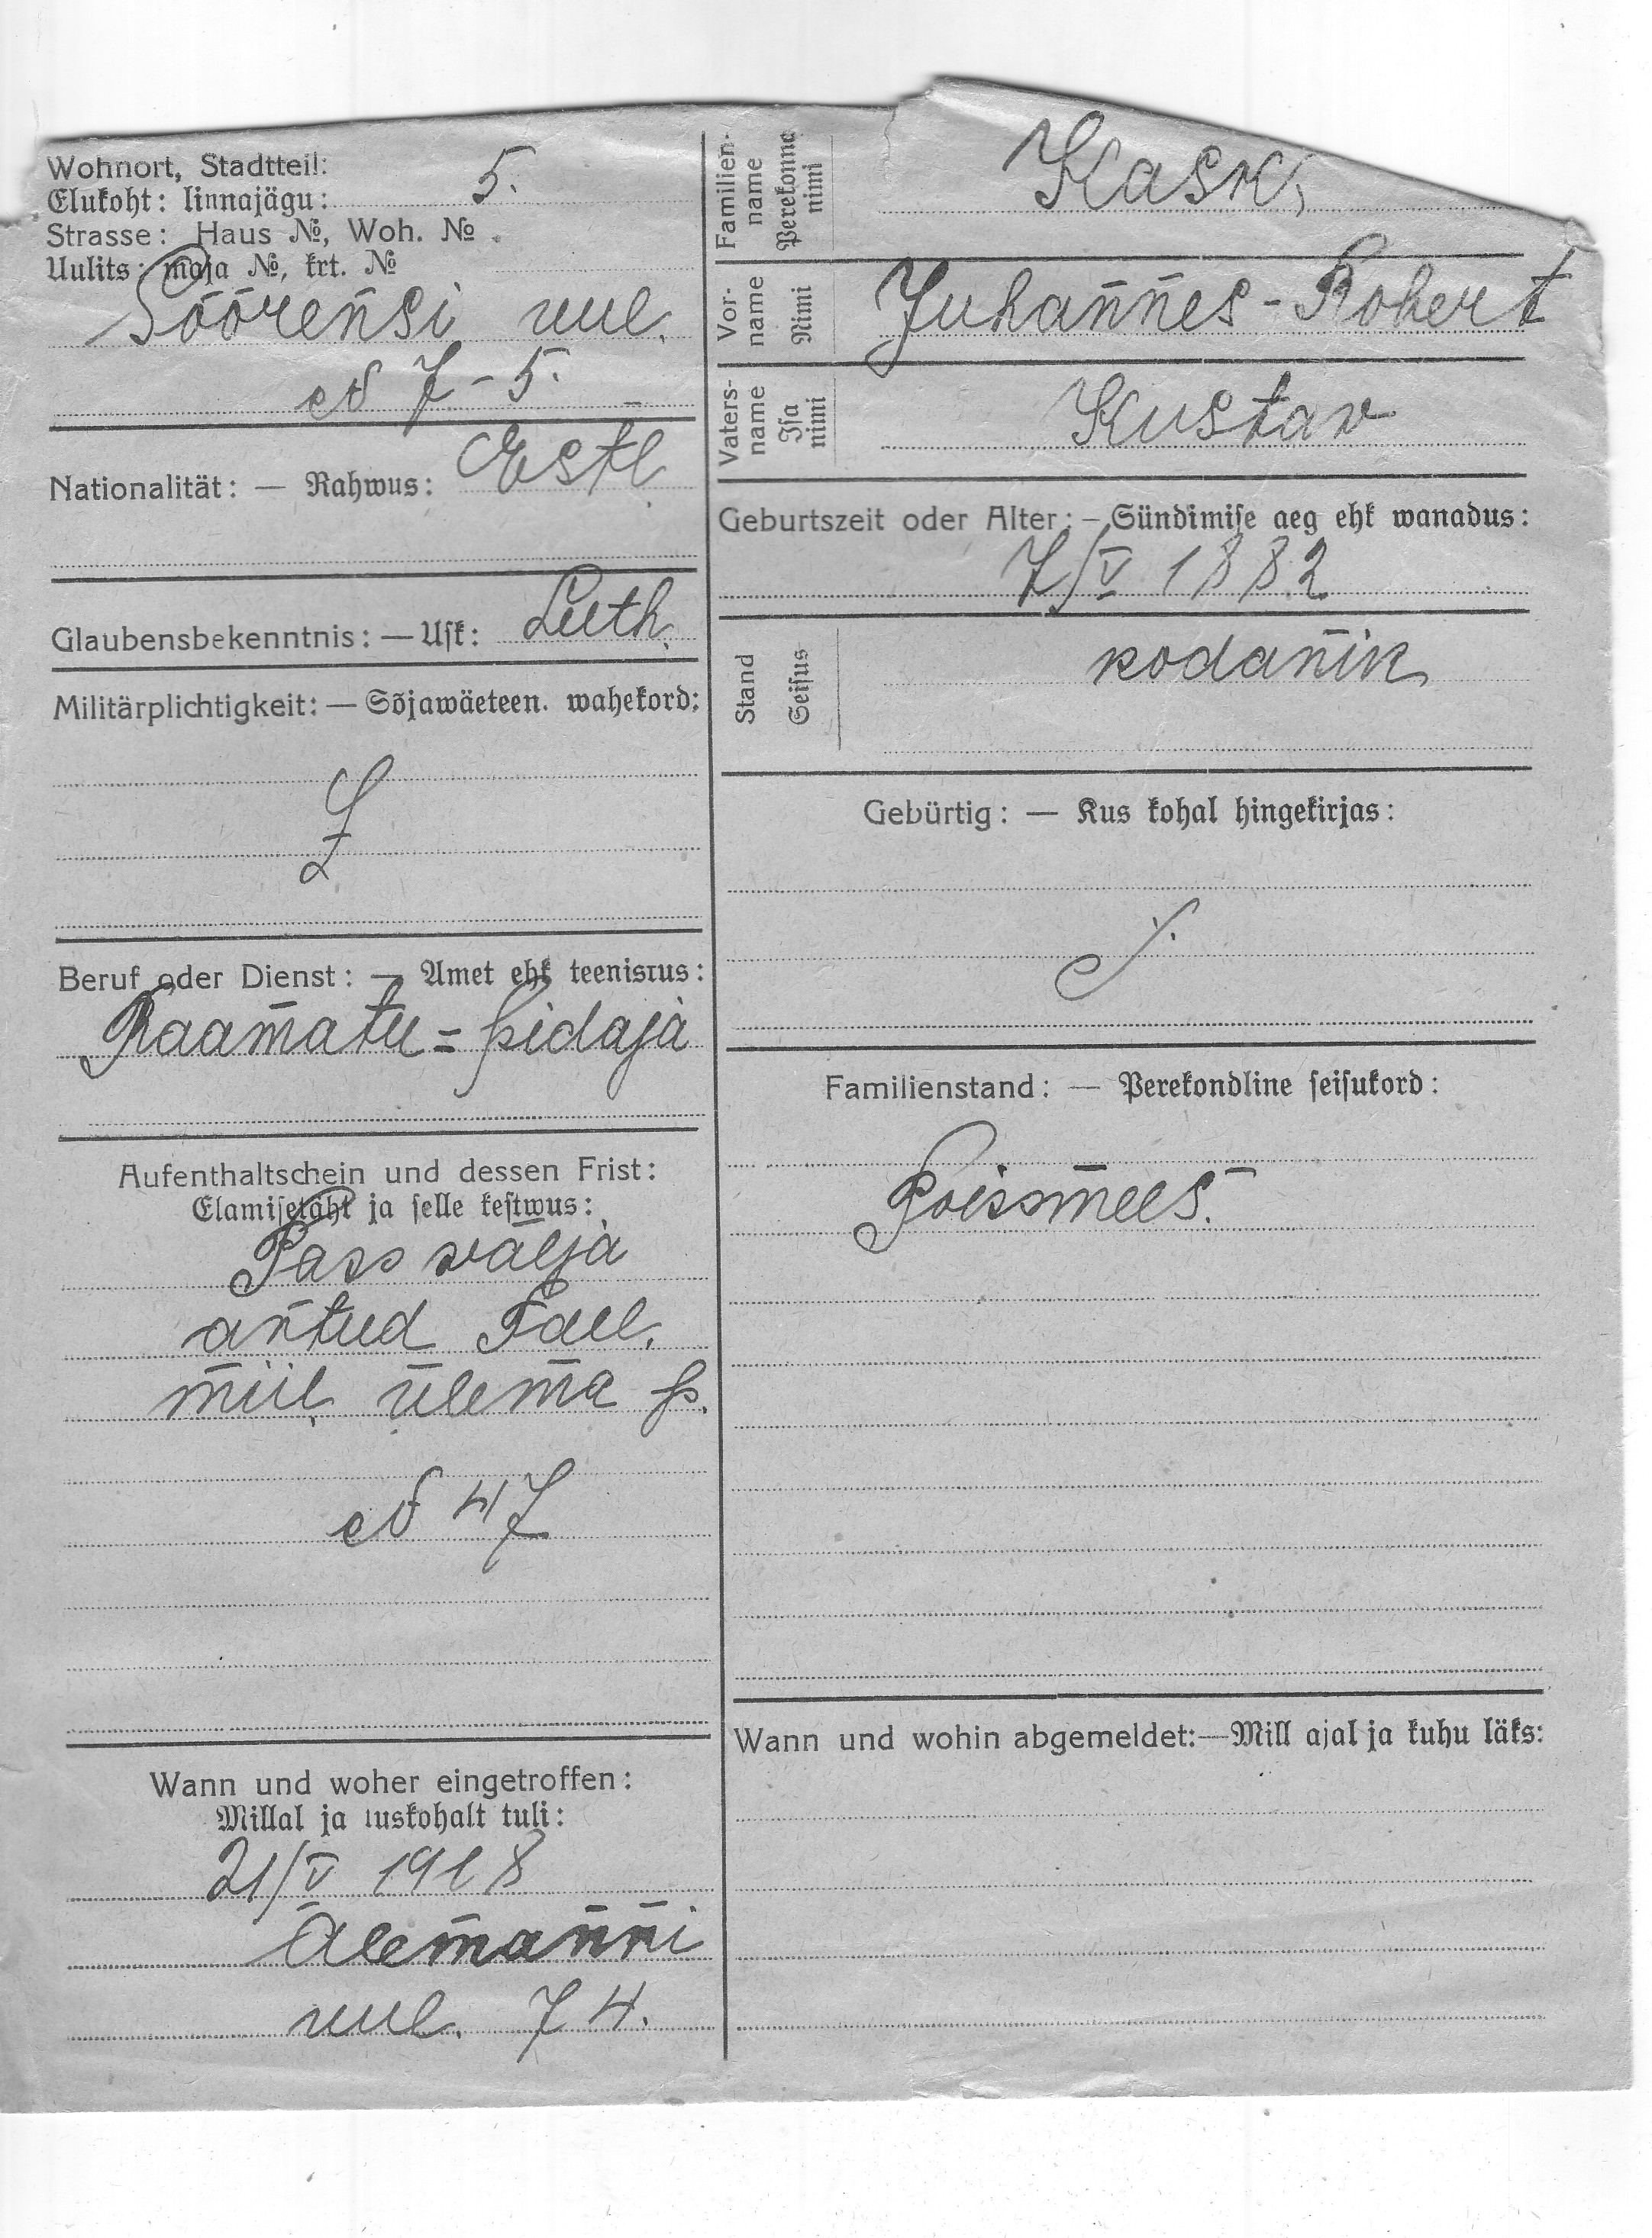 Wohnort, Stadtteil:
Elukoht: linnajägu: 5.
Strasse: Haus №, Woh. №
Uulits: maja №, krt. №
Söörensi uul.
№ 7 - 5.
Nationalität: — Rahwus: Estl.
Glaubensbekenntnis: — Usk: Luth.
Militärplichtigkeit: — Sõjawäeteen. wahekord:
Beruf oder Dienst: — Amet ehk teenistus:
Raamatu=pidaja
Aufenthaltschein und dessen Frist:
Elamisetäht ja selle kestwus:
Pass välja
antud
miil. ülema p.
№ 47
Wann und woher eingetroffen:
Millal ja kuskohalt tuli:
21/V 1918
Alemanni
uul. 74.
Familien-
name
Perekonna
nimi
Kask,
Vor-
name
Nimi
Juhannes-Robert
Vaters-
name
Isa
nimi
Kustav
Geburtszeit oder Alter: — Sündimise aeg ehk wanadus:
7/V 1882
Stand
Seisus
kodanik
Gebürtig: — Kus kohal hingekirjas:
Familienstand: — Perekondline seisukord:
Poissmees.
Wann und wohin abgemeldet:—Mill ajal ja kuhu läks: